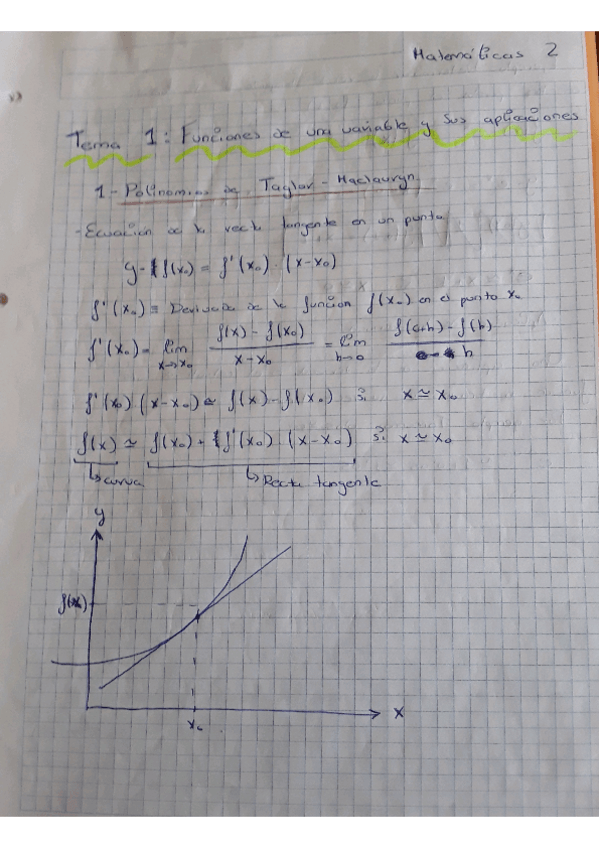 Matemáticas 2
Tema 1: Funciones de una variable y sus aplicaciones
1- Polinomios de Taylor - Maclauryn
- Ecuación de la recta tangente en un punto
y - f(x₀) = f'(x₀) · (x-x₀)
f'(x₀) ≡ Derivada de la función f(x) en el punto x₀
f'(x₀) = lim x→x₀ (f(x) - f(x₀)) / (x - x₀) = lim h→0 (f(a+h) - f(h)) / h
f'(x₀) (x-x₀) ≃ f(x) - f(x₀) si x ≃ x₀
f(x) ≃ f(x₀) + f'(x₀) (x-x₀) si x ≃ x₀
↳ curva ↳ Recta tangente
y
f(x₀)
x
x₀